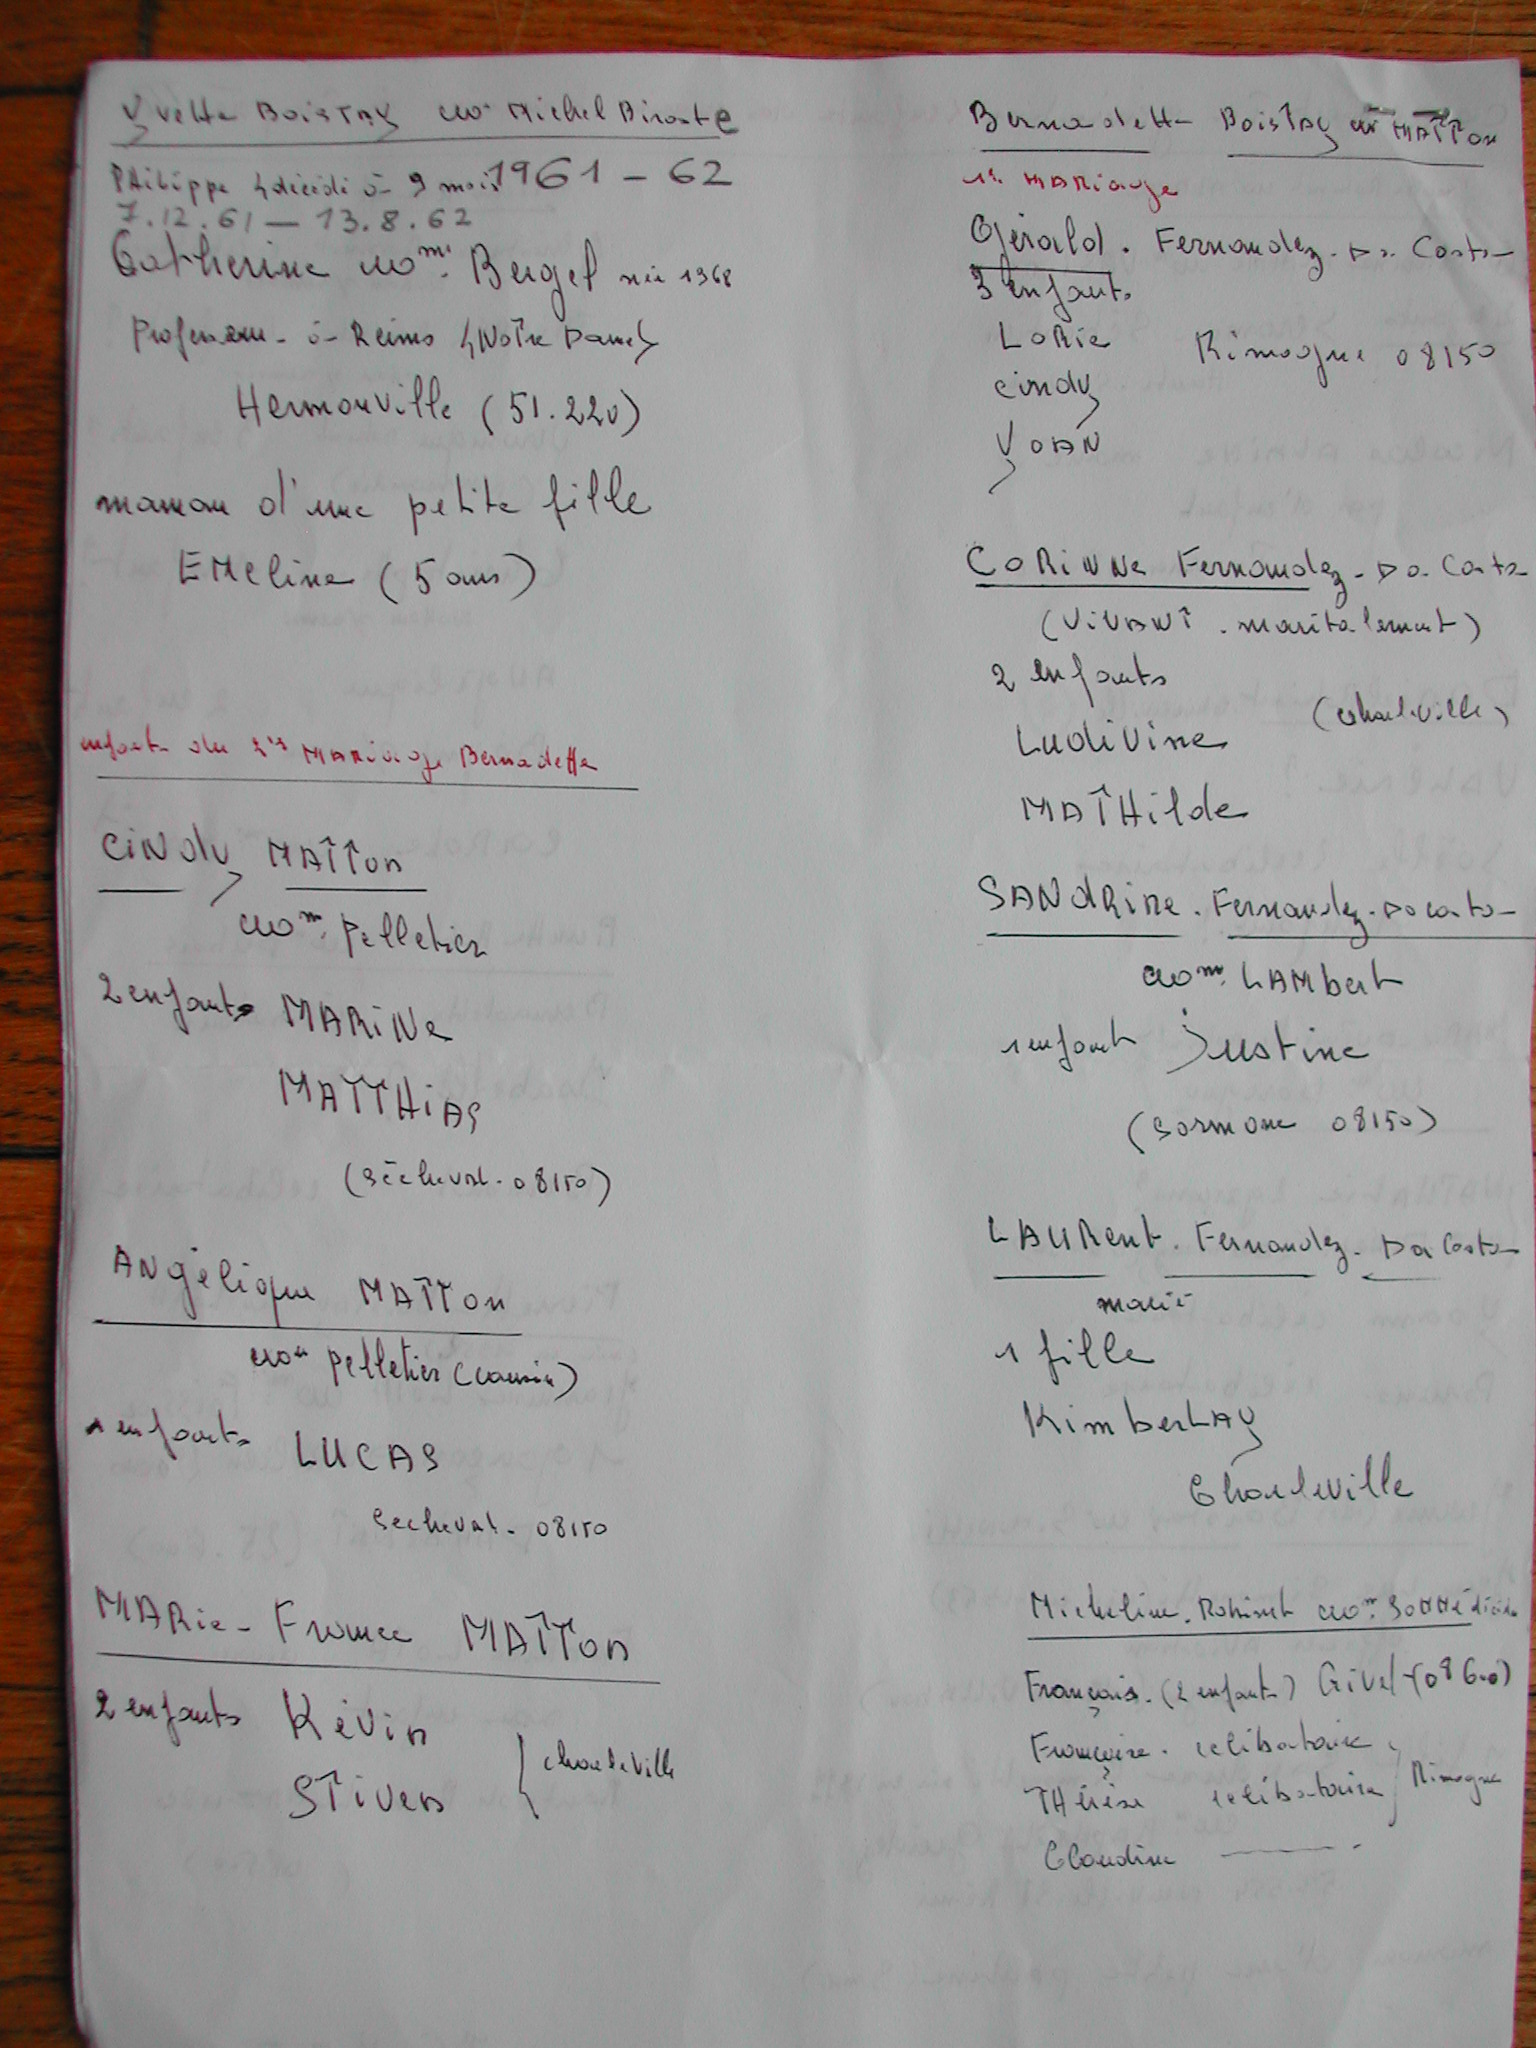 Yvette BOISTAY Michel Biroste
Philippe décédé à 9 mois 1961 - 62
7.12.61 - 13.8.62
Catherine née 1968
Professeur à Reims (Notre Dame)
Hermonville (51.220)
maman d'une petite fille
EMeline (5 ans)
enfants du 2è MARiage Bernadette
CiNdy MATTon
Pelletier
2 enfants MARiNe
MATTHiAS
(Sécheval. 08150)
ANgélique MATTon
Pelletier (cousin)
1 enfants LUCAS
Secheval. 08150
MARie - France MATTon
2 enfants Kévin
STiven } charleville
Bernadette BoisTay MATTon
1er MARiage
Gérald. Fernandez. Da Costa
3 enfants
LoRie
Rimogne 08150
cindy
YOAN
CoRiNNe Fernandez. Da Costa
(ViVANT. maritalement)
2 enfants
(charleville)
LudiVine
MATHilde
SANdRine. Fernandez. Da costa
LAMbert
1 enfant Justine
(Sormone 08150)
LAURent. Fernandez. Da Costa
marié
1 fille
KimberLAy
Charleville
Micheline.
François. (2 enfants) Givet (08600)
Françoise. celibataire
THérèse celibataire } Rimogne
Claudine ——